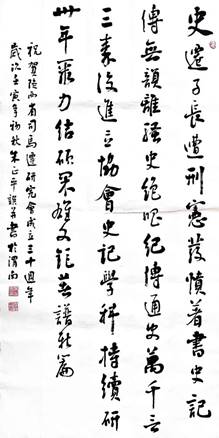 史遷子長遭刑憲發憤着書史記
傳無韻離騷史絕唱紀傳通史萬千言
三秦後進立協會史記學科持續研
卅年聚力結碩果雄文鉅著譜新篇
祝賀陝西省司馬遷研究會成立三十週年
歲次壬寅年初秋朱正平撰并書於渭南